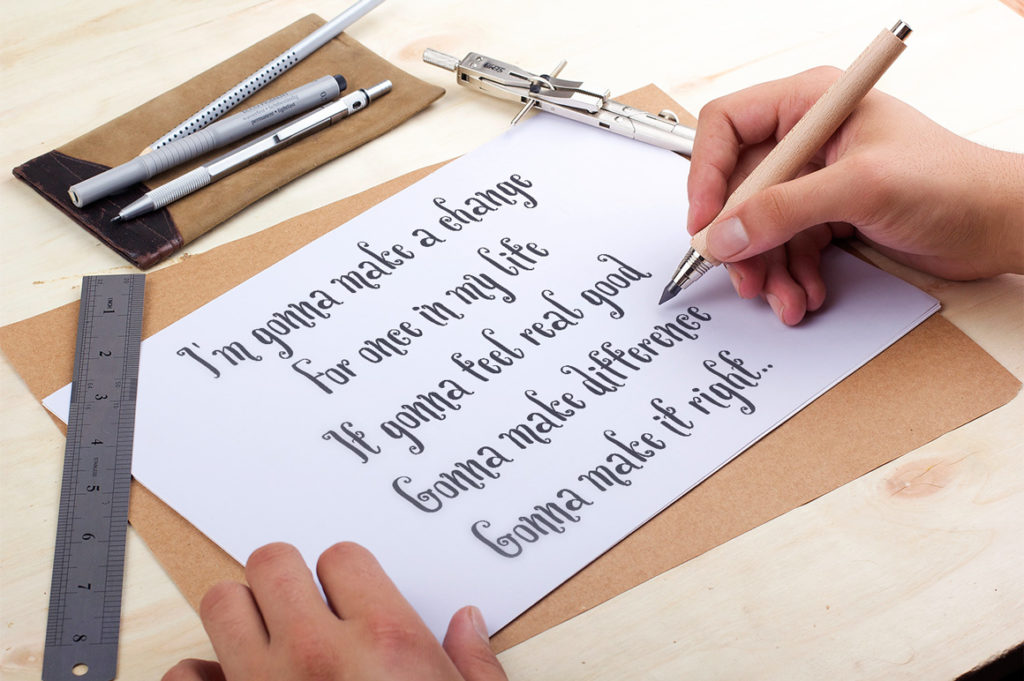 I'm gonna make a change
For once in my life
It gonna feel real good
Gonna make difference
Gonna make it right..
1
2
3
4
5
6
7
8